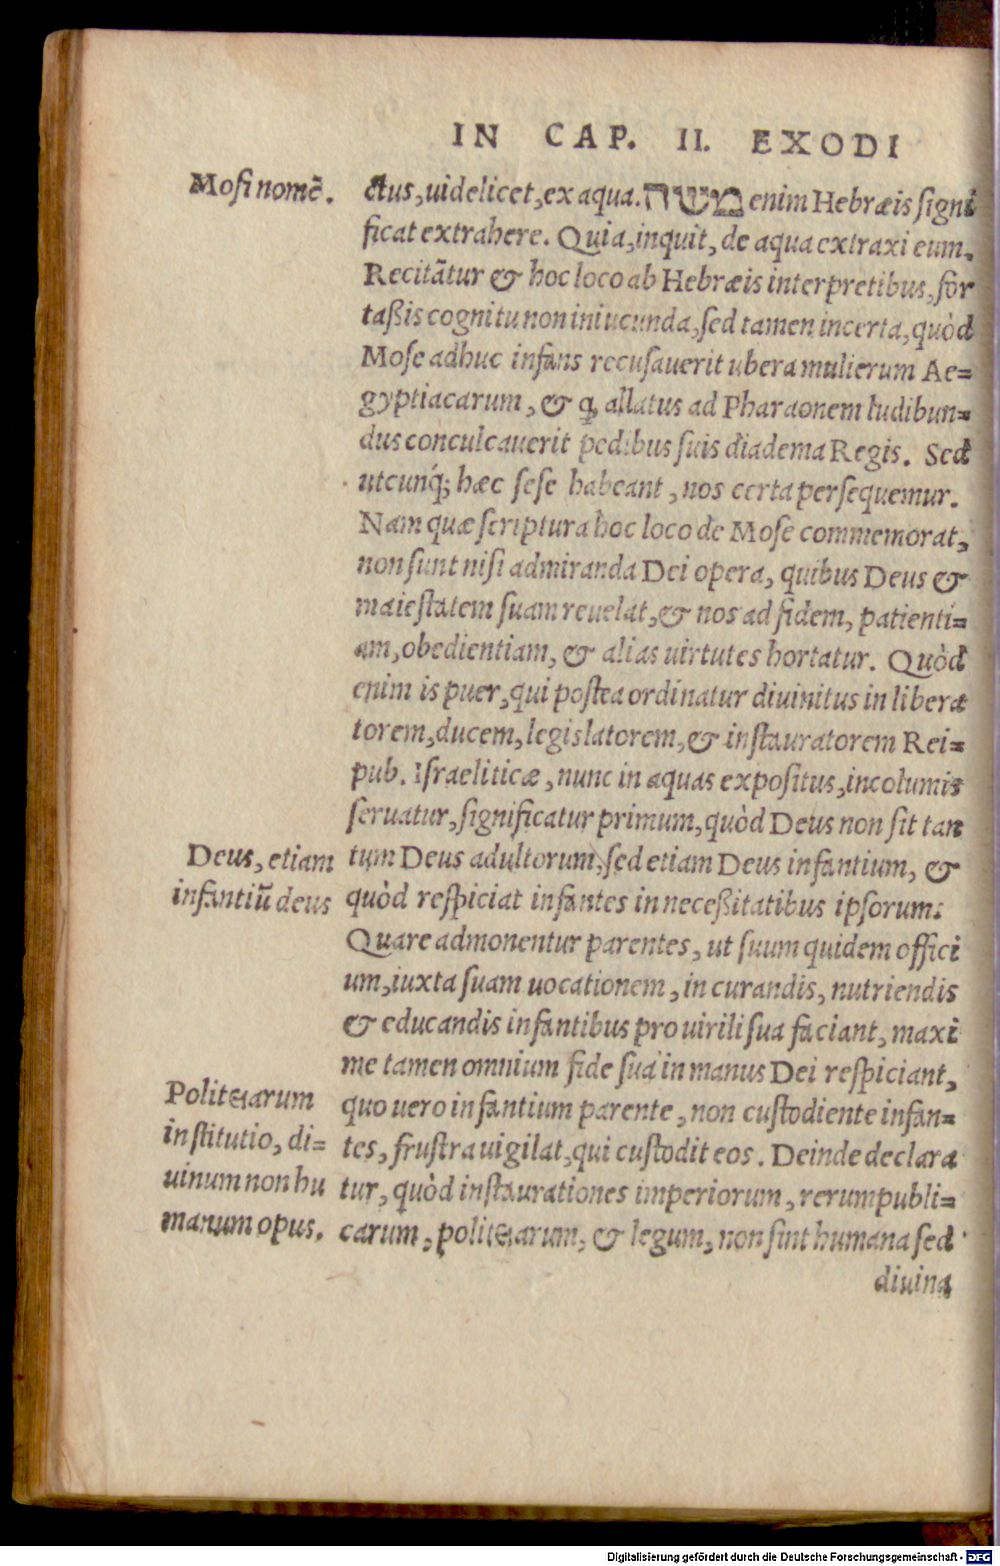 IN CAP. II. EXODI
Mosi nomē.
ctus, uidelicet, ex aqua. משה enim Hebræis signi
ficat extrahere. Quia, inquit, de aqua extraxi eum.
Recitātur & hoc loco ab Hebræis interpretibus, for
taßis cognitu non iniucunda, sed tamen incerta, quòd
Mose adhuc infans recusauerit ubera mulierum Ae=
gyptiacarum, & ꝙ allatus ad Pharaonem ludibun=
dus conculcauerit pedibus suis diadema Regis. Sed
utcunq́; hæc sese habeant, nos certa persequemur.
Nam quæ scriptura hoc loco de Mose commemorat,
non sunt nisi admiranda Dei opera, quibus Deus &
maiestatem suam reuelat, & nos ad fidem, patienti=
am, obedientiam, & alias uirtutes hortatur. Quòd
enim is puer, qui postea ordinatur diuinitus in libera
torem, ducem, legislatorem, & instauratorem Rei=
pub. Israeliticæ, nunc in aquas expositus, incolumis
seruatur, significatur primum, quòd Deus non sit tan
Deus, etiam
infantiū deus
tum Deus adultorum, sed etiam Deus infantium, &
quòd respiciat infantes in neceßitatibus ipsorum:
Quare admonentur parentes, ut suum quidem offici
um, iuxta suam uocationem, in curandis, nutriendis
& educandis infantibus pro uirili sua faciant, maxi
me tamen omnium fide sua in manus Dei respiciant,
Politeiarum
institutio, di=
uinum non hu
manum opus.
quo uero infantium parente, non custodiente infan=
tes, frustra uigilat, qui custodit eos. Deinde declara
tur, quòd instaurationes imperiorum, rerumpubli=
carum, politeiarum, & legum, non sint humana sed
diuina
Digitalisierung gefördert durch die Deutsche Forschungsgemeinschaft - DFG